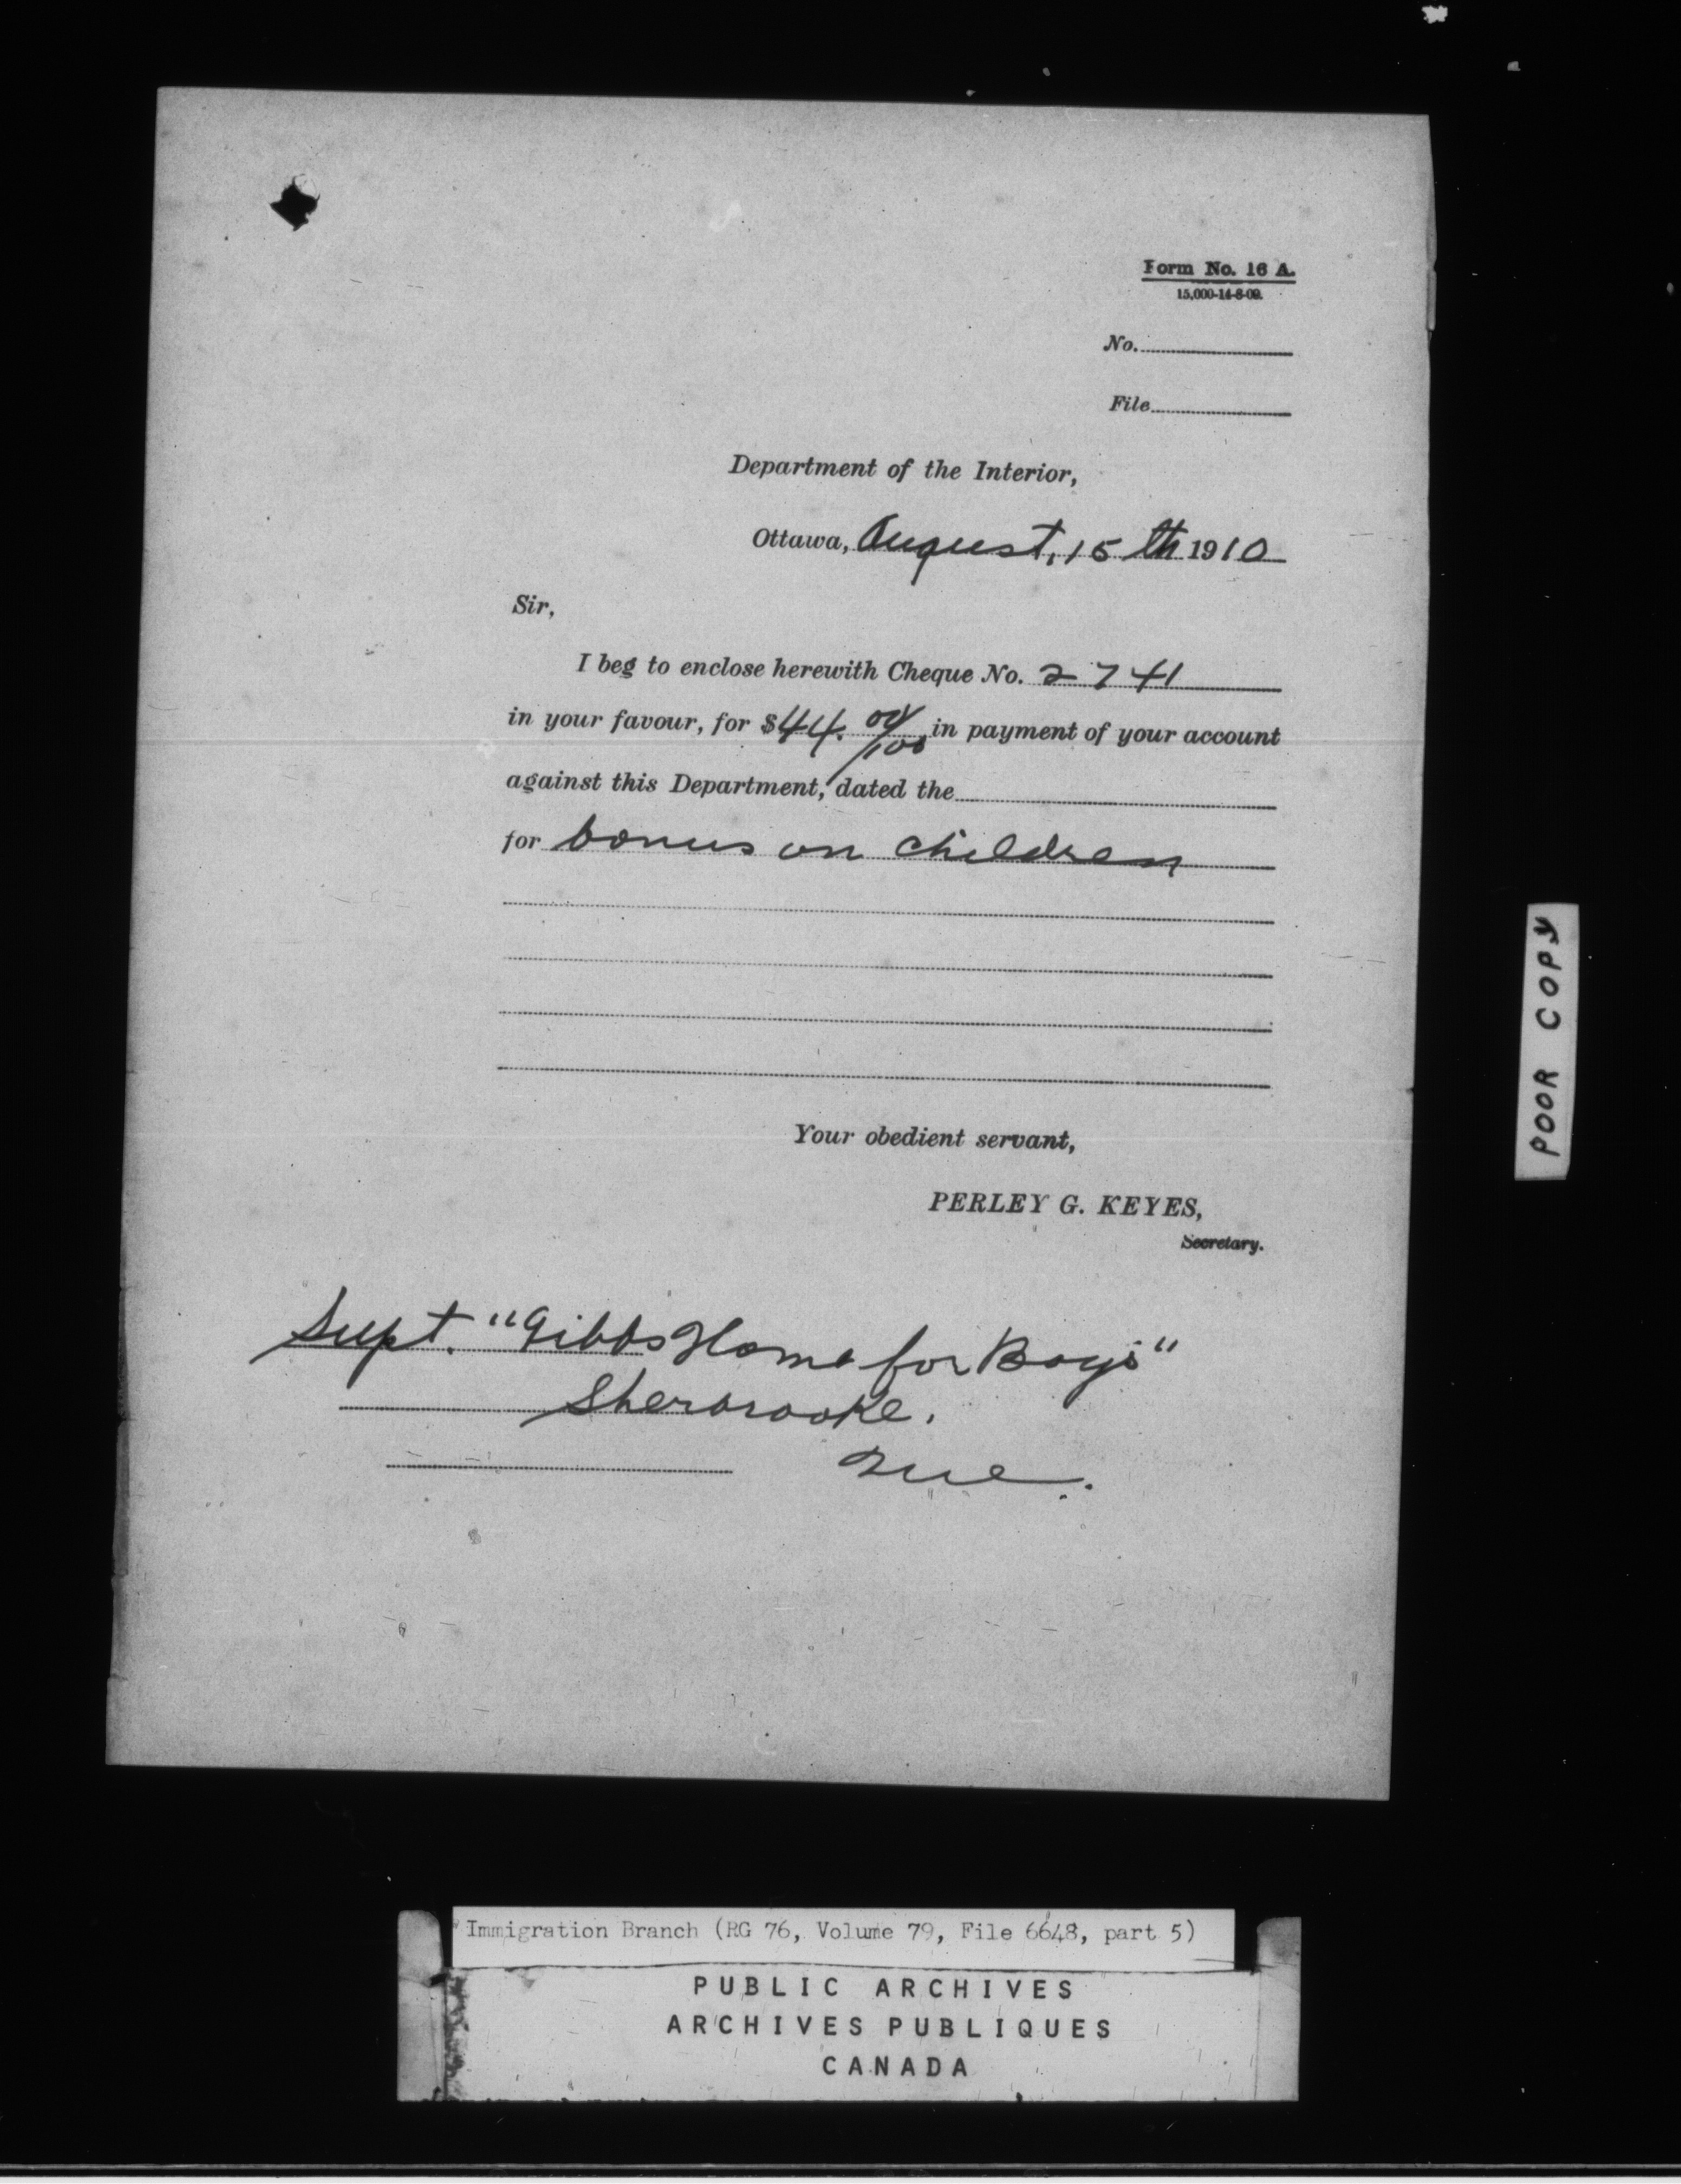 Form No. 16 A.
15,000-14-8-09.
No.
File
Department of the Interior,
Ottawa, August, 15th 1910
Sir,
I beg to enclose herewith Cheque No. 2741
in your favour, for $44. 00/100 in payment of your account
against this Department, dated the
for bonus on children
Your obedient servant,
PERLEY G. KEYES,
Secretary.
Supt. "Gibbs Home for Boys"
Sherbrooke.
Que.
POOR COPY
Immigration Branch (RG 76, Volume 79, File 6648, part 5)
PUBLIC ARCHIVES
ARCHIVES PUBLIQUES
CANADA